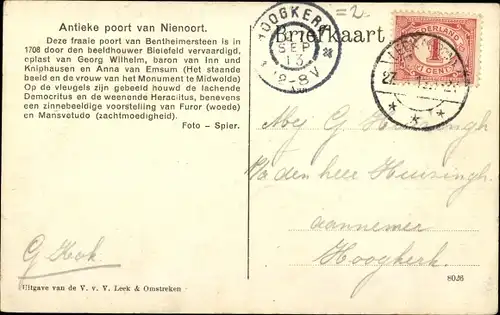 Antieke poort van Nienoort.
Deze fraaie poort van Bentheimersteen is in
1708 door den beeldhouwer Bielefeld vervaardigd,
oplast van Georg Wilhelm, baron van Inn und
Kniphausen en Anna van Emsum (Het staande
beeld en de vrouw van het Monument te Midwolde)
Op de vleugels zijn gebeeld houwd de lachende
Democritus en de weenende Heraclitus, benevens
een zinnebeeldige voorstelling van Furor (woede)
en Mansvetudo (zachtmoedigheid).
Foto – Spier.
G Kok
Uitgave van de V. v. V. Leek & Omstreken
=2
HOOGKERK
SEP
13
8-V
Briefkaart
NEDERLAND
1
CENT
27
Mej G Huizingh
v/d den heer Huisingh
aannemer
Hoogkerk
8026